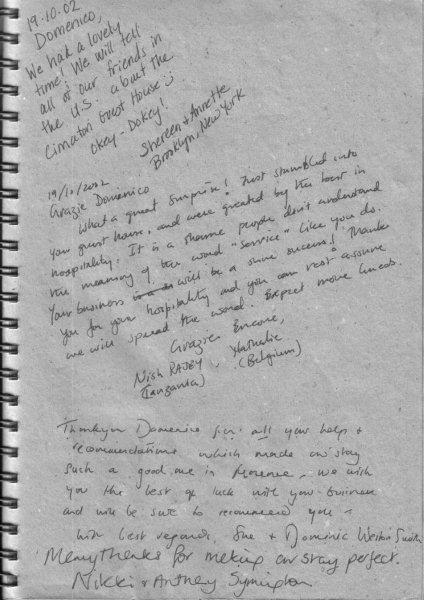 19.10.02
Domenico,
We had a lovely
time! We will tell
all of our friends in
the U.S. about the
Cimatori Guest House :)
Okey-Dokey!
Shereen & Annette
Brooklyn, New York
19/10/2002
Grazie Domenico
What a great surprise! Just stumbled into
your guest house, and were greated by the best in
hospitality. It is a shame people don't understand
the meaning of the word "service" like you do.
Your business will be a sure success! Thanks
you for your hospitality and you can rest assure
we will spread the word. Expect more guests.
Grazie Encore,
Nish RAJBY, Nathalie
(Tanzania) (Belgium)
Thankyou Domenico for all your help &
recomendations which made our stay
such a good one in Florence. We wish
you the best of luck with your business
and will be sure to recommend you -
with best regards, Sue & Dominic Weston Smith
Many thanks for making our stay perfect.
Nikki & Anthony Symington